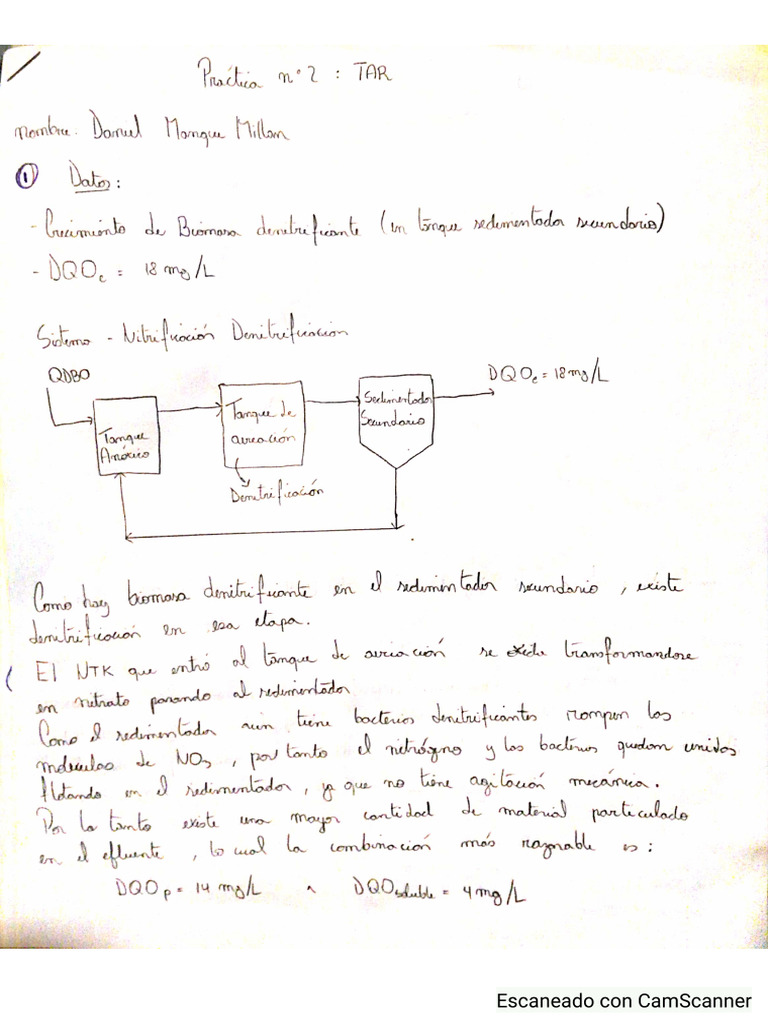 Práctica n°2 : TAR
nombre. Daniel Manque Millan
① Datos:
- Crecimiento de Biomasa denitrificante (en tanque sedimentador secundario)
- DQOe = 18 mg/L
Sistema - Nitrificación Denitrificación
QDBO
DQOe = 18 mg/L
Tanque
Anóxico
Tanque de
aireación
Sedimentador
Secundario
Denitrificación
Como hay biomasa denitrificante en el sedimentador secundario, existe
denitrificación en esa etapa.
( El NTK que entró al tanque de aireación se transformandose
en nitrato pasando al sedimentador
Como el sedimentador aún tiene bacterias denitrificantes rompen las
moléculas de NO3, por tanto el nitrógeno y las bacterias quedan unidos
flotando en el sedimentador, ya que no tiene agitación mecánica.
Por lo tanto existe una mayor cantidad de material particulado
en el efluente, lo cual la combinación más razonable es:
DQOp = 14 mg/L ^ DQOsoluble = 4 mg/L
Escaneado con CamScanner